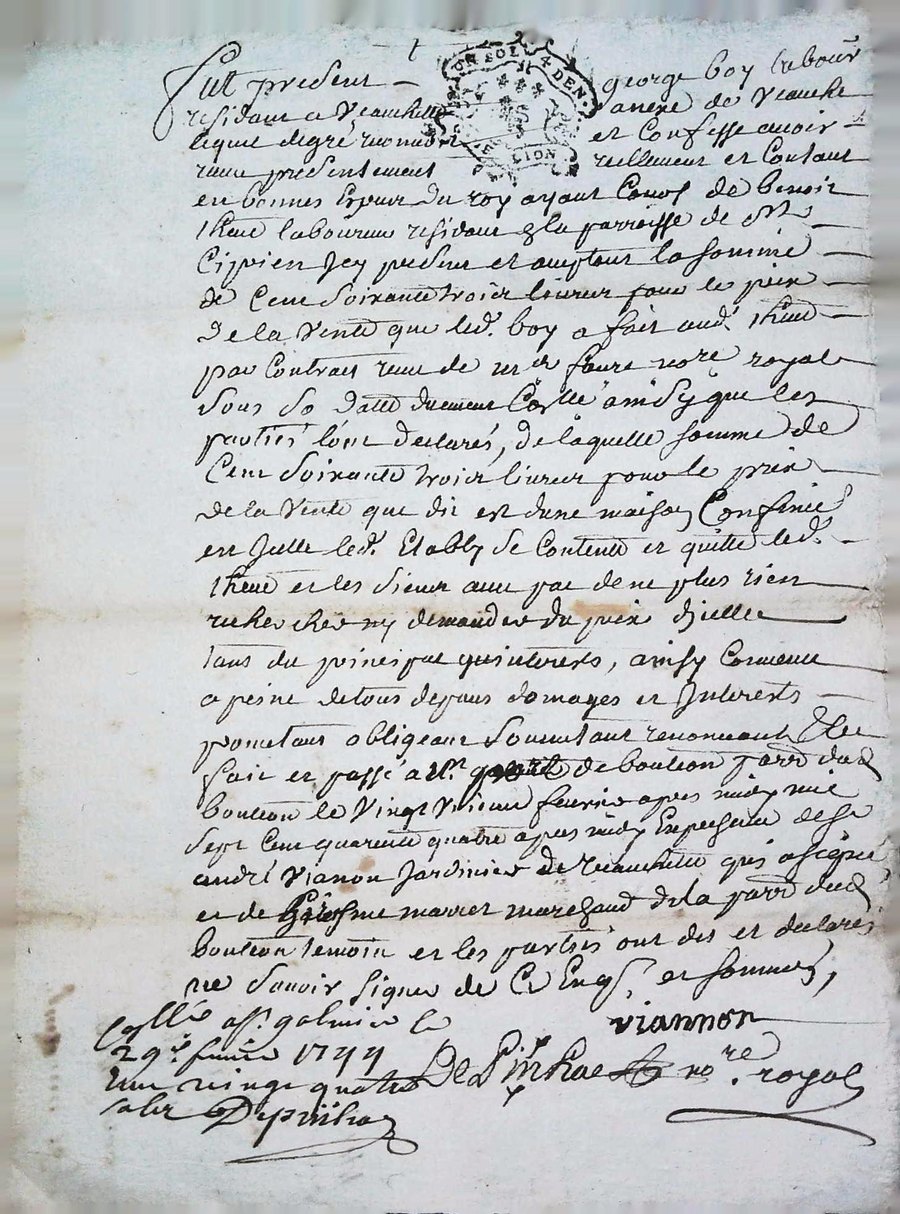 Fut present george boy labour
residant a Veauchette anexe de Veauche
lequel de gré et Confesse avoir
receu presentement reellement et Contant
en bonnes Espece du roy ayant Cours de benoit
laboureur residant a la parroisse de St
Ciprien Jcy present et aceptant la somme
de Cent Soixante trois livres pour le prix
de la Vente que led. boy a fait aud.
par Contrat receu de me faure nore royal
sous sa datte duement Collé ainsy que les
parties l'ont declarés, de laquelle somme de
Cent Soixante trois livres pour le prix
de la Vente que dit est dune maison Confinée
en Jcelle led. Etably se Contente et quitte led.
et les siens avec pac de ne plus rien
rechercher ny demander du prix dicelle
tant du principal quinterests, ainsy Convenu
a peine de tous depans domages et Jnterests
prometant obligeant Soumetant renonceant &c
fait et passé a de bouteon parr dud
bouteon le Vingt fevrier apres midy mil
sept Cent quarente quatre apres midy En presence de sr
andré Vianon Jardinier de Veauchette qui a signé
et de marret marchand de la parr dud
bouteon temoin et les parties ont dit et declarés
ne Savoir signer de Ce Enqs. et sommés,
viannon
Collé a st. galmier le
29e. fevrier 1744
receu vingt quatre
sols Depinhac
De Pinhac nore. royal
ION SOL 4 DEN.
LION